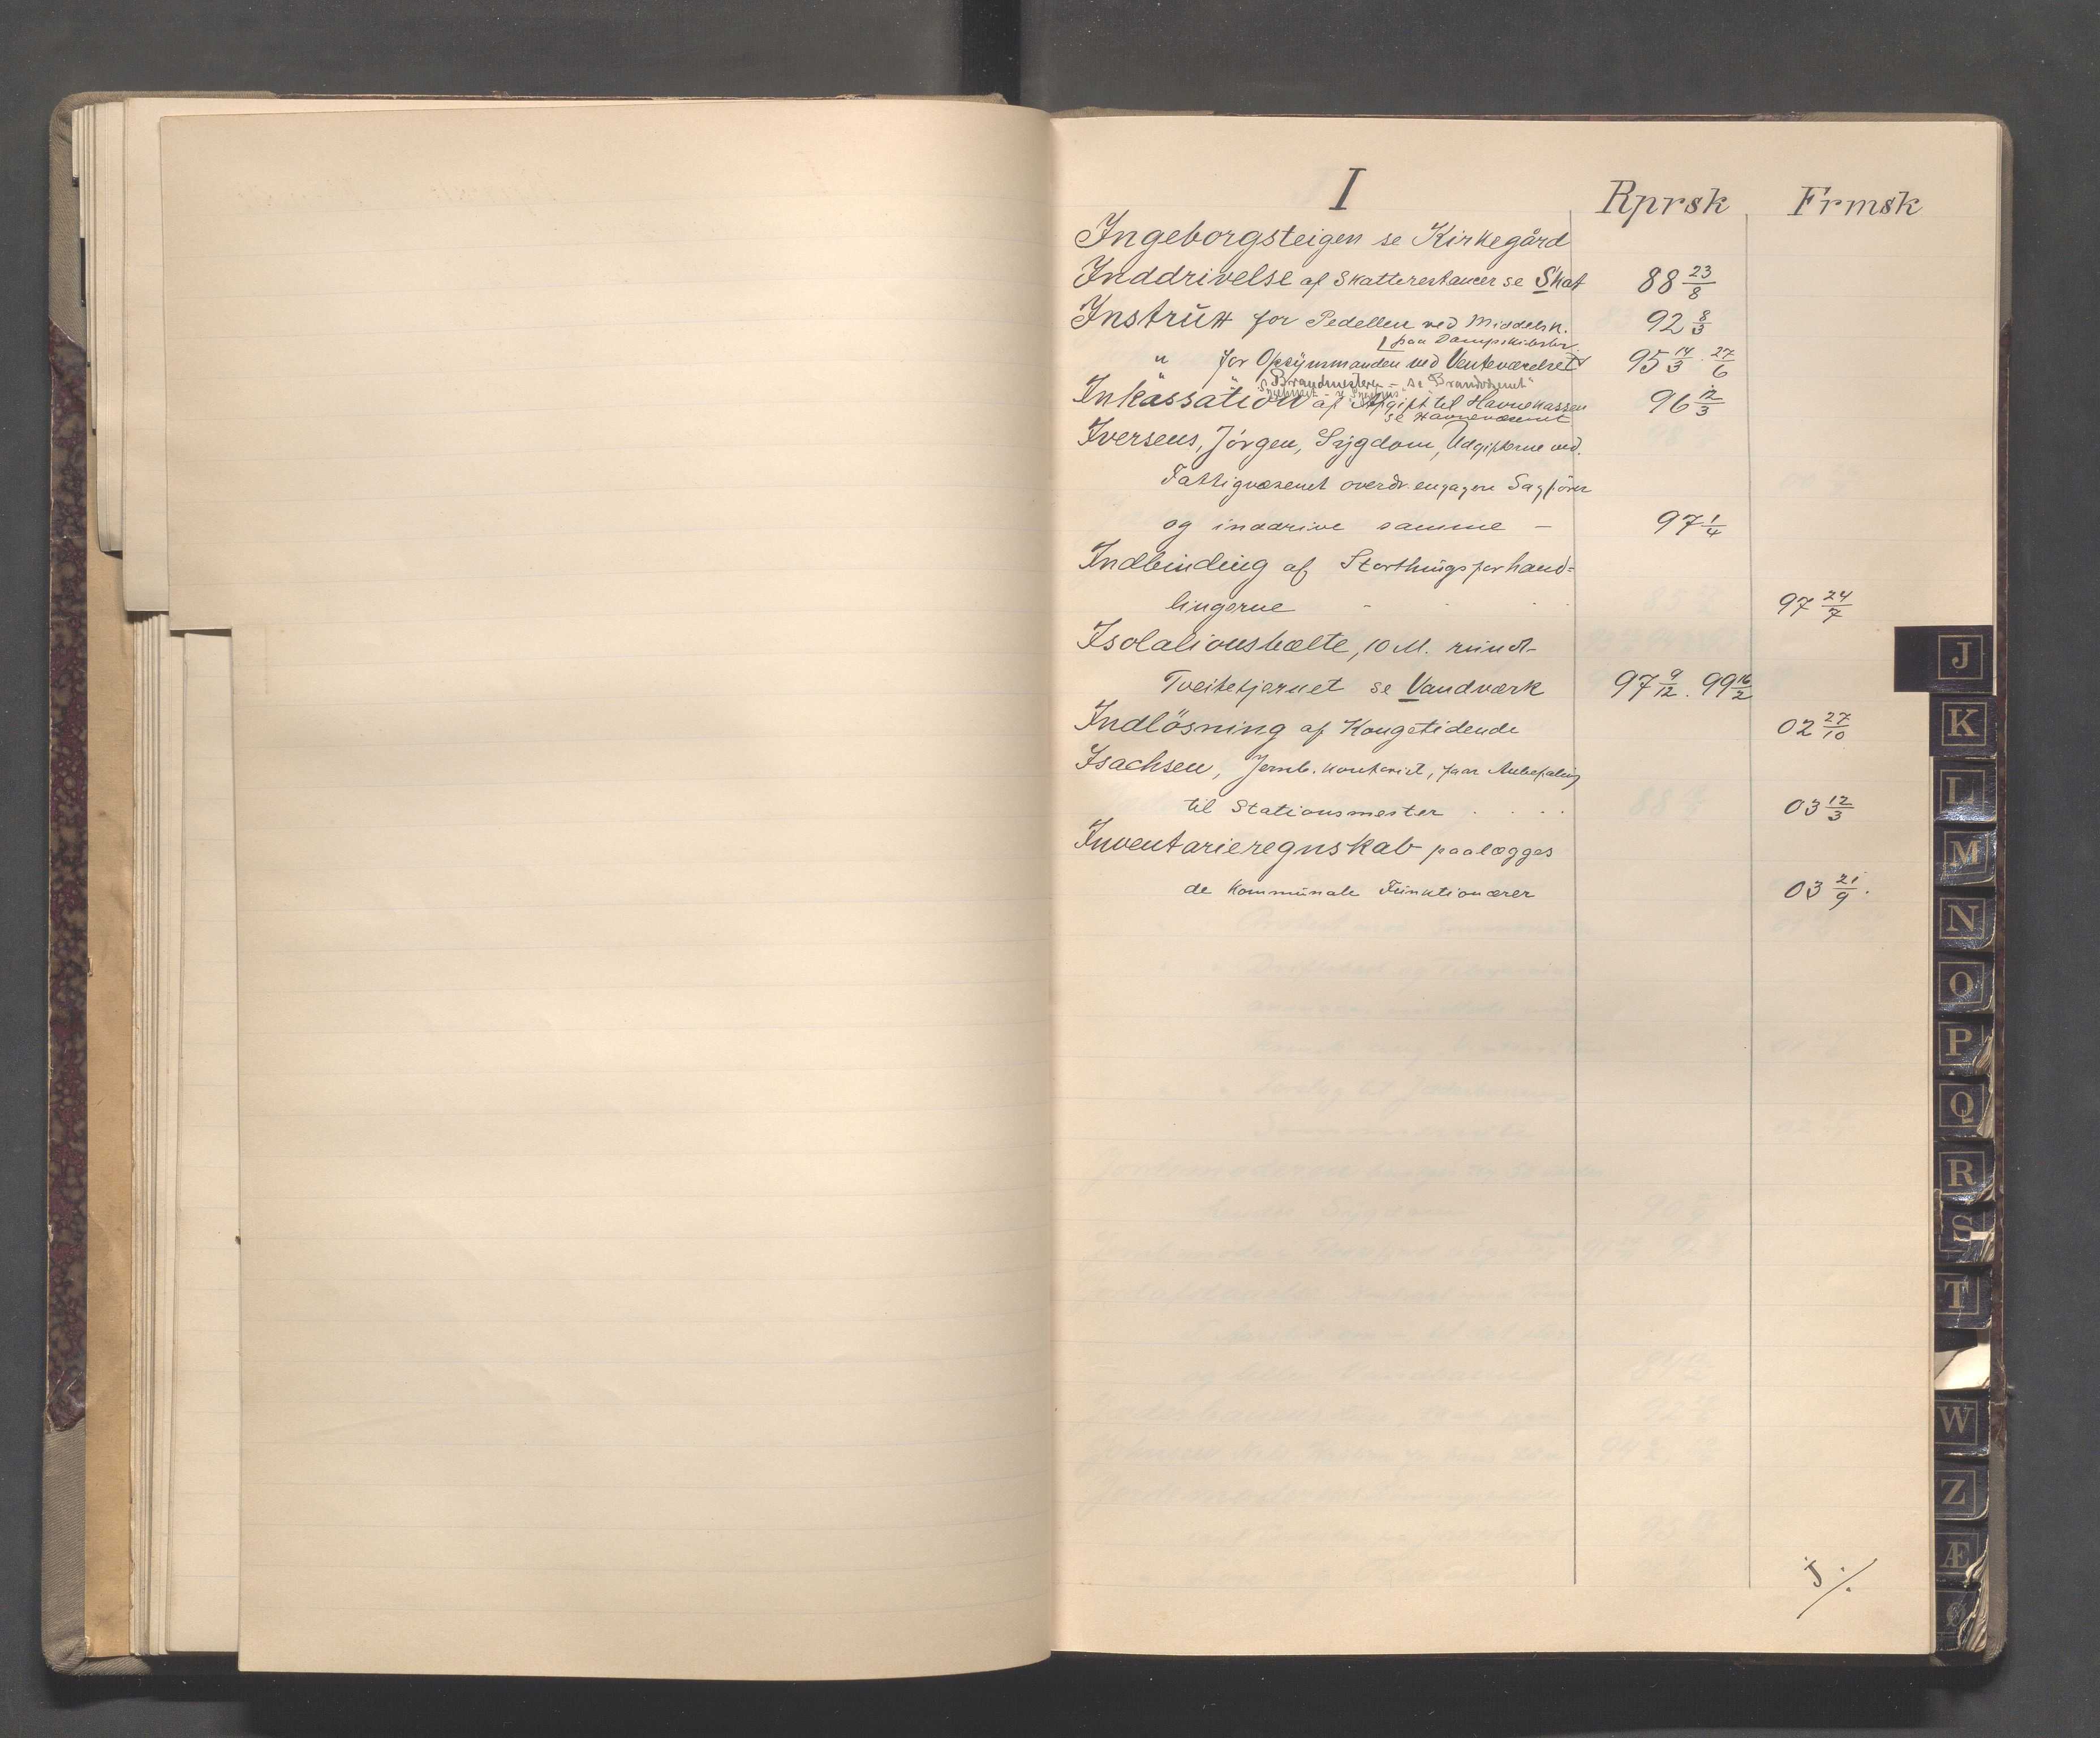 I Rprsk Frmsk
Ingeborgsteigen se Kirkegård
Inddrivelse af Skatterestancer se Skat 88 23/8
Instrux for Pedellen ved Middelsk. 92 8/3
paa Dampskibsbr.
" for Opsynsmanden ved Venteværelset 95 14/3 . 27/6
" " Brandmestere - se "Brandvæsenet"
Inkassation af Afgift til Havnekassen 96 12/3
se Havnevæsenet
Iversens, Jörgen, Sygdom, Udgifterne ved.
Fattigvæsenet overdr. engagere Sagförer
og inddrive samme - 97 1/4
Indbinding af Storthingsforhand=
lingerne 97 24/7
Isolationsbælte, 10 M. rundt
Tveitetjernet se Vandværk 97 9/12 . 99 16/2
Indlösning af Kongetidende 02 27/10
Isachsen, Jernb. kontorist, faar Anbefaling
til Stationsmester . . . . 03 12/3
Inventarieregnskab paalægges
de kommunale Funktionærer 03 21/9 .
J ./.
J
K
L
M
N
O
P
Q
R
S
T
W
Z
Æ
Ø